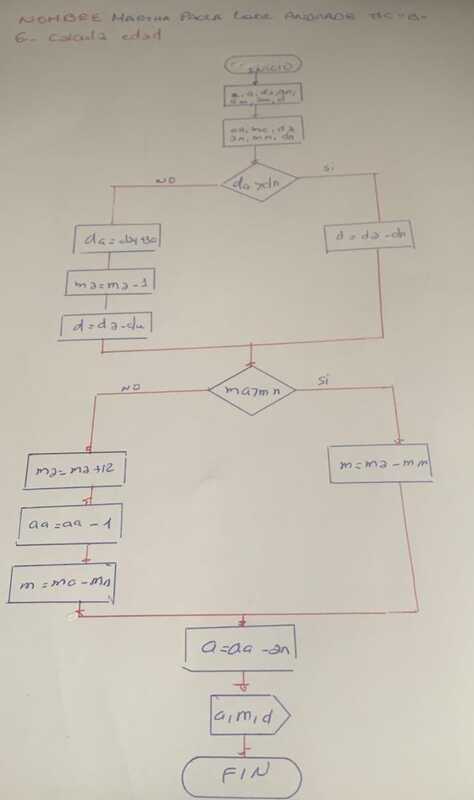 NOMBRE MARTHA PAOLA ANDRADE
6- Calcula edad
INICIO
aa, ma, da
an, mn, dn
da > dn
NO
SI
da = da+30
d = da-dn
ma=ma-1
d=da-dn
ma>mn
NO
SI
ma=ma+12
m=ma-mn
aa=aa-1
m=ma-mn
a=aa-an
a,m,d
FIN